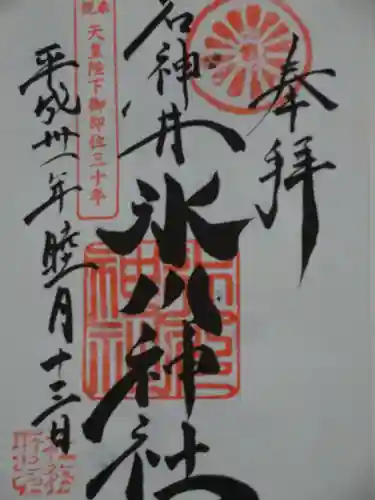 奉拝
石神井
氷川神社
奉祝 天皇陛下御即位三十年
平成卅一年睦月十三日